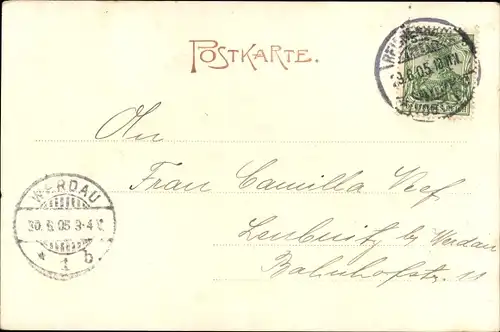 POSTKARTE.
29.6.05
An
Frau Camilla
Leubnitz by Werdau
Bahnhofstr. 11
WERDAU
30.6.05 3-4 V.
* 1 b